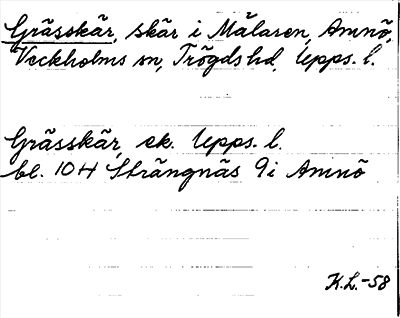 Grässkär, skär i Mälaren, Amnö,
Veckholms sn, Trögds hd, Upps. l.
Grässkär, ek. Upps. l.
bl. 104 Strängnäs 9i Amnö
K.L.-58